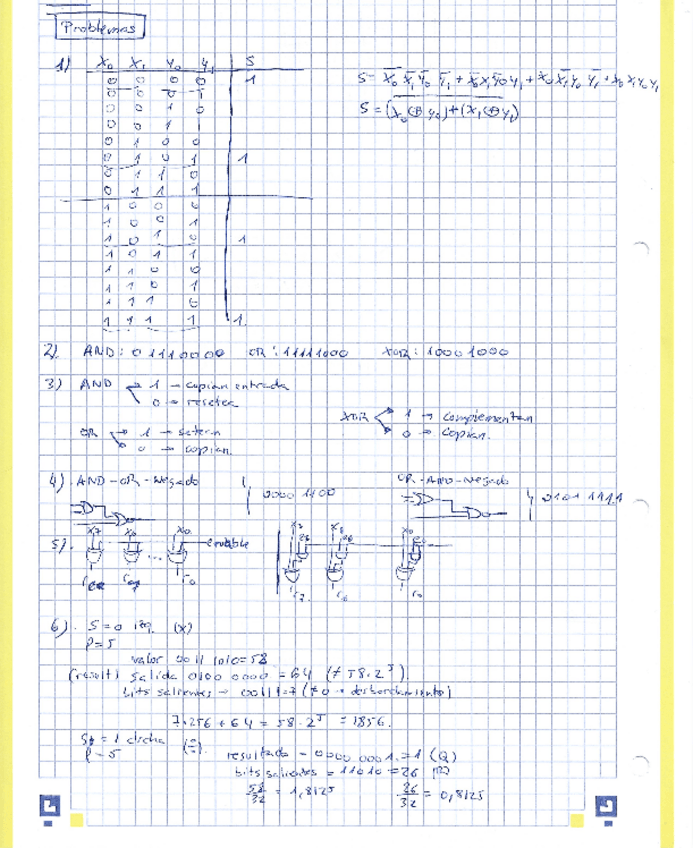 Problemas
1) X₀ X₁ Y₀ Y₁ S
0 0 0 0 1
0 0 0 1
0 0 1 0
0 0 1 1
0 1 0 0
0 1 0 1 1
0 1 1 0
0 1 1 1
1 0 0 0
1 0 0 1
1 0 1 0 1
1 0 1 1
1 1 0 0
1 1 0 1
1 1 1 0
1 1 1 1 1
S = X̄₀ X̄₁ Ȳ₀ Ȳ₁ + X̄₀ X₁ Ȳ₀ Y₁ + X₀ X̄₁ Y₀ Ȳ₁ + X₀ X₁ Y₀ Y₁
S = (X₀ ⊕ Y₀) + (X₁ ⊕ Y₁)
2) AND: 01110000 OR: 11111000 XOR: 10001000
3) AND 1 → copian entrada
0 → resetea
OR 1 → setean
0 → copian.
XOR 1 → complementan
0 → copian.
4) AND-OR-Negado 0000 1100
OR-AND-Negado 0101 1111
5). X₇ X₆ ... X₀ enable
r₀
X₇ X₆ X₀
r₇ r₆ r₀
6). S=0 izq. (x)
P=5
valor 0011 1010 = 58
(result) salida 0100 0000 = 64 (≠ 58·2⁵)
bits salientes → 00111=7 (≠0 → desbordamiento)
7·256 + 64 = 58·2⁵ = 1856.
S = 1 drcha (÷).
P=5
resultado = 0000 0001 = 1 (Q)
bits salientes = 11010 = 26 (R)
58/32 = 1,8125 26/32 = 0,8125